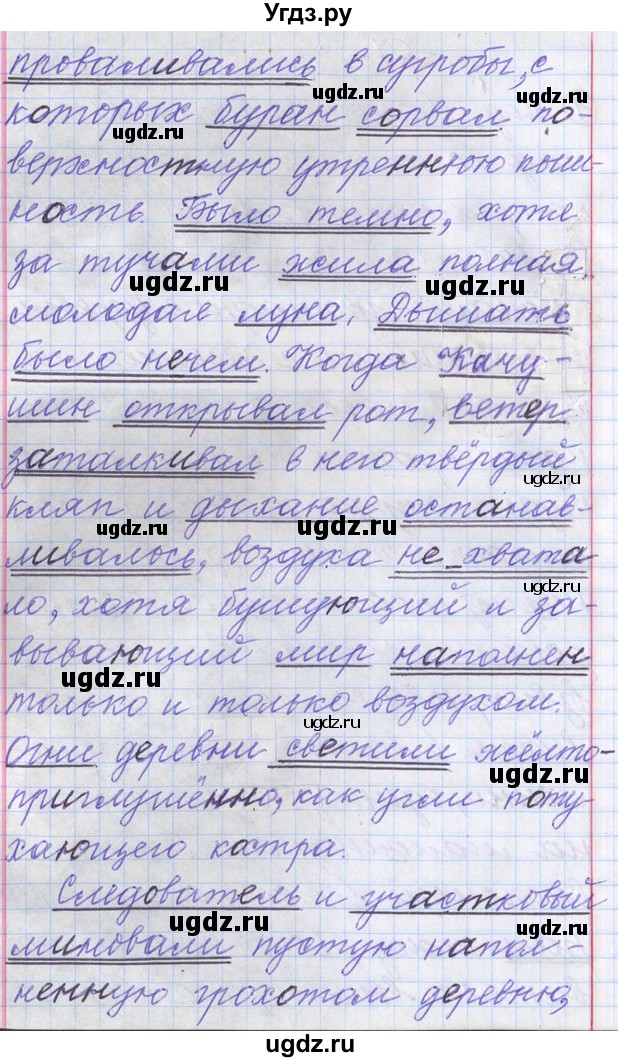 Угдз.ру
проваливались в сугробы, с
которых буран сорвал по-
верхностную утреннюю пыш-
ность. Было темно, хотя
за тучами жила полная
молодая луна. Дышать
было нечем. Когда Качу-
шин открывал рот, ветер
заталкивал в него твёрдый
кляп и дыхание останав-
ливалось, воздуха не хвата
ло, хотя бушующий и за-
вывающий мир наполнен
только и только воздухом.
Огни деревни светили жёлто-
приглушённо, как угли поту-
хающего костра.
Следователь и участковый
миновали пустую напол-
ненную грохотом деревню,
ugdz.ru